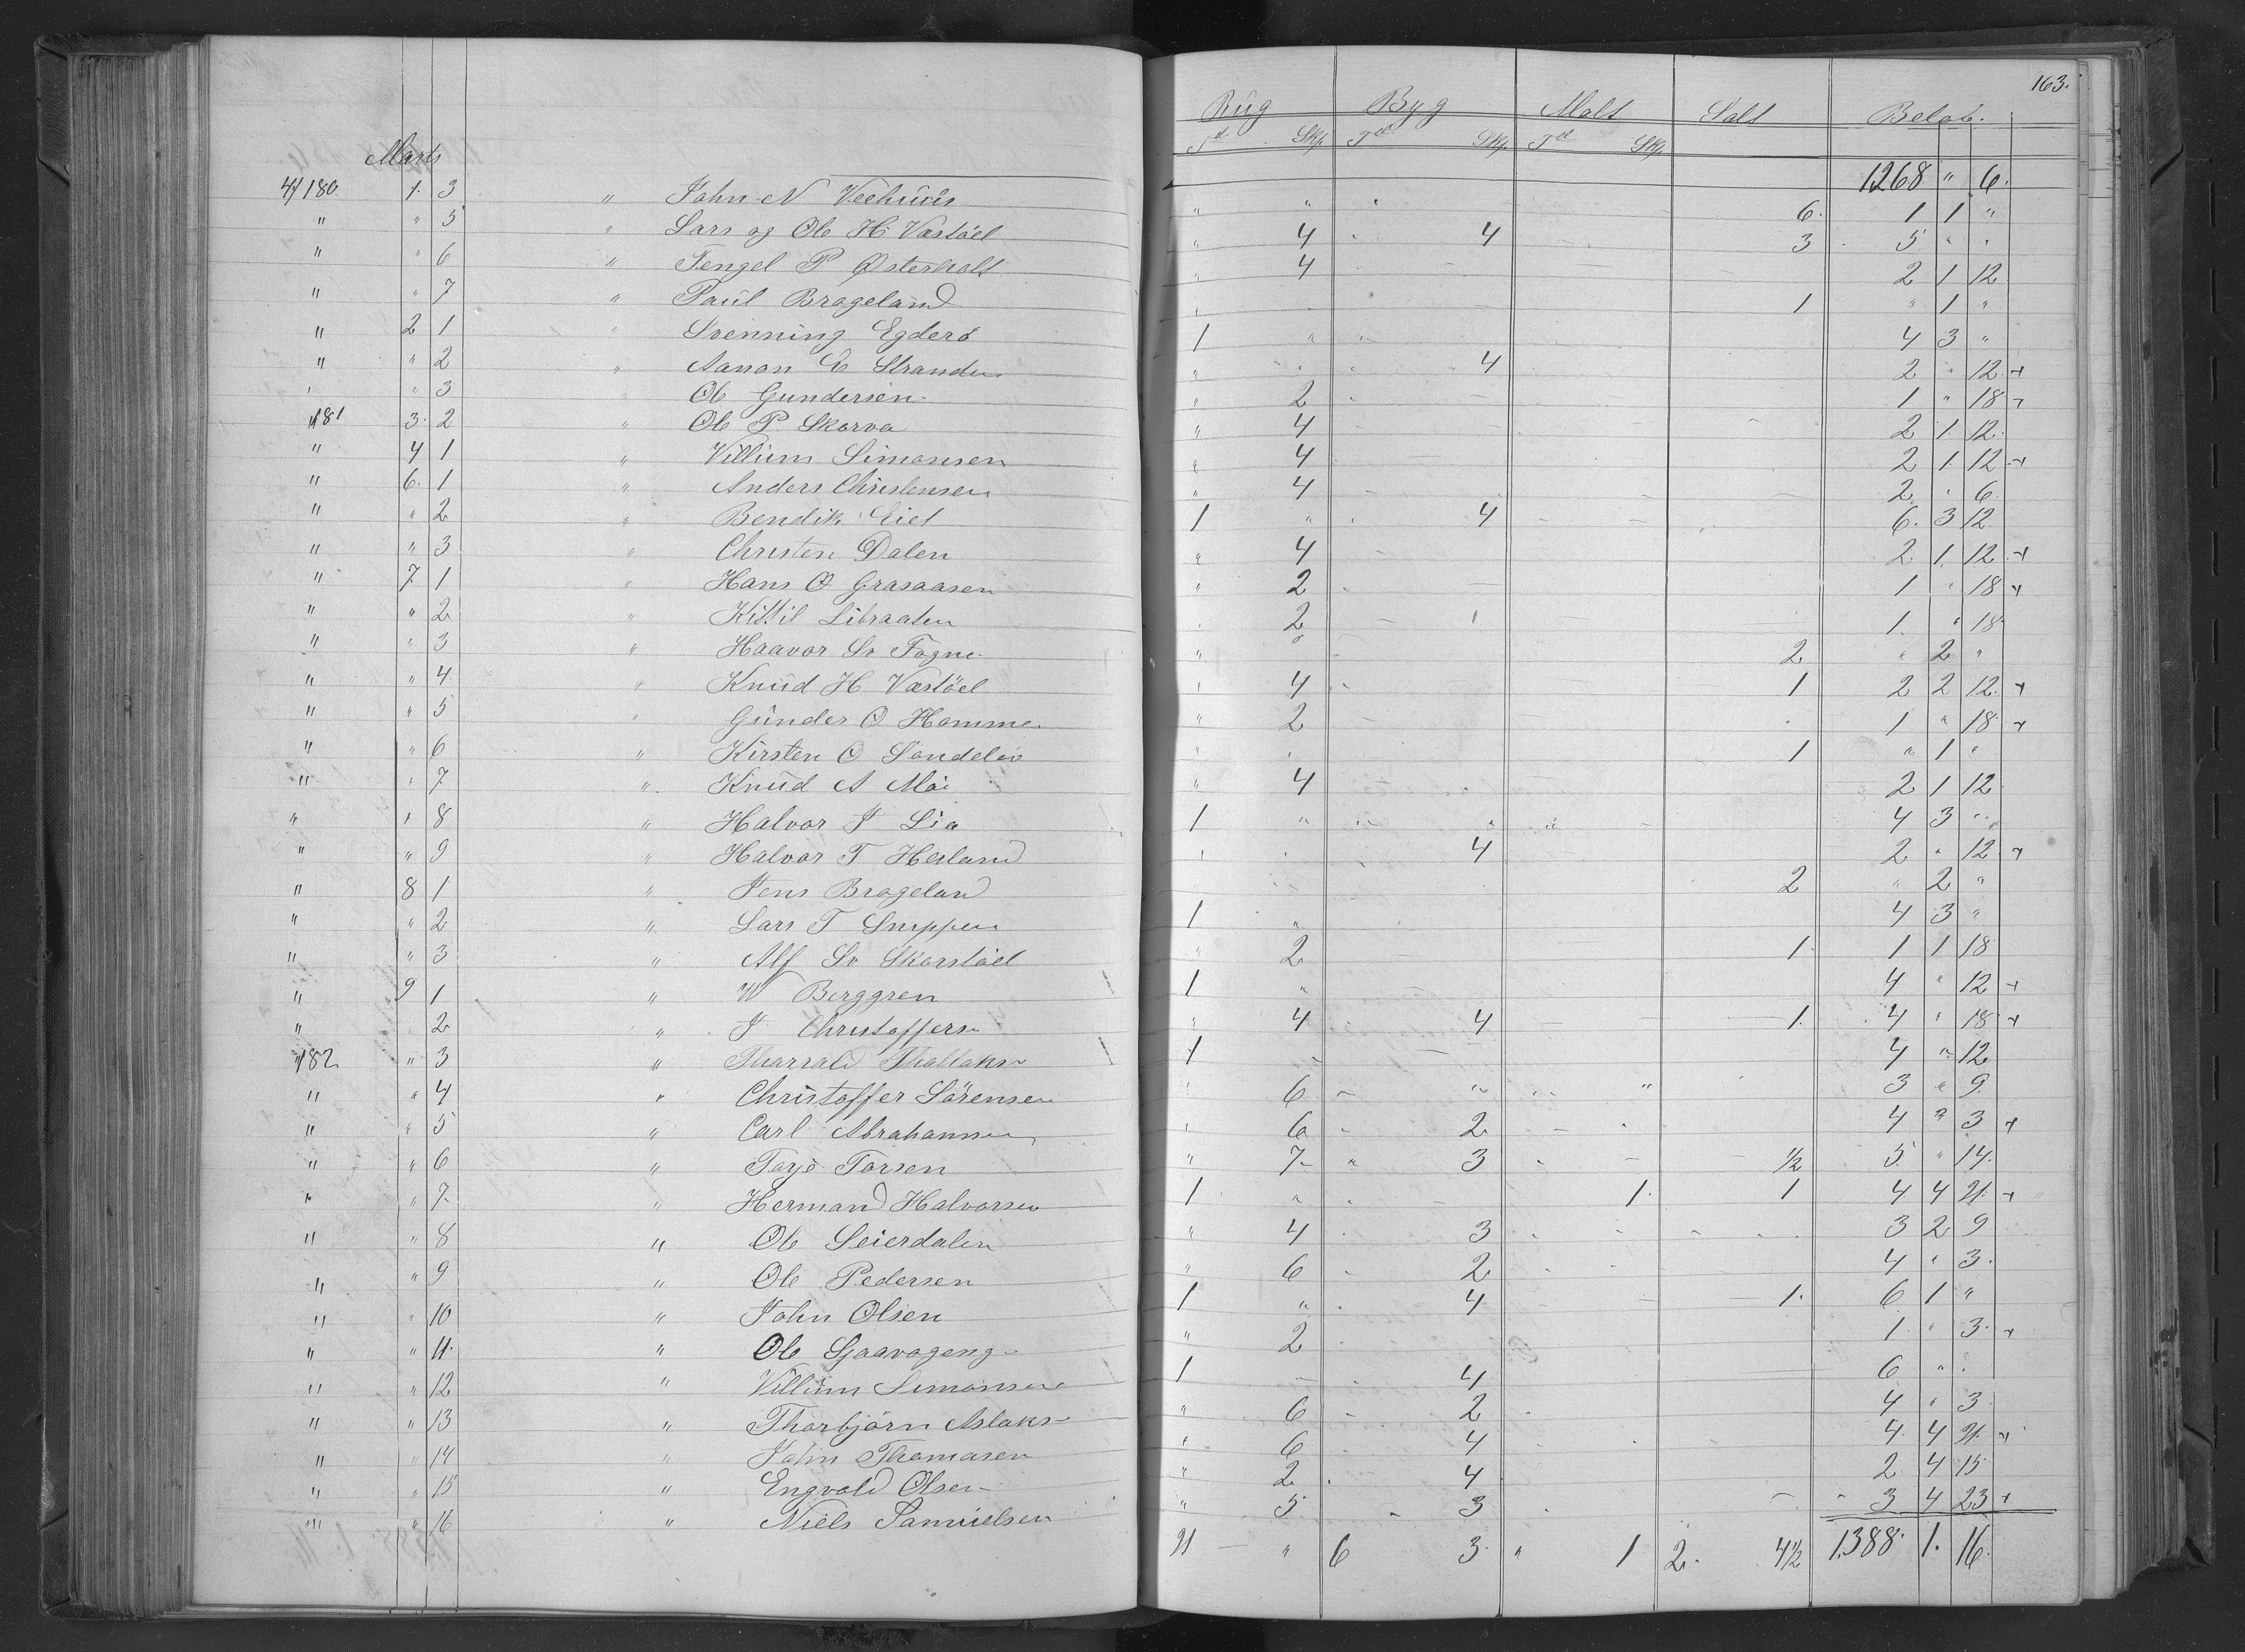 163.
Rug Byg Malt Salt Beløb.
Td Skp. Td Skp. Td Skp.
Marts 1268 " 6.
4/180 1. 3 " John N Veehuus " " " 6. 1 1 "
" " 5 " Lars og Ole H. Vastöel " 4 4 3 5 " "
" " 6 " Tengel P Østerholt " 4 2 1 12
" " 7 " Paul Brageland 1 " 1 "
" 2 1 " Svenning Egderö 1 " 4 3 "
" " 2 " Aanon E Stranden " 4 2 " 12 +
" " 3 " Ole Gundersen " 2 1 " 18 +
"/181 3. 2 " Ole P. Skarva " 4 2 1. 12.
" 4 1 " Villum Simonsen " 4 2 1. 12 +
" 6. 1 " Anders Christensen " 4 2 " 6
" " 2 " Bendik Eiet 1 " 4 6. 3 12
" " 3 " Christen Dalen " 4 2. 1. 12. +
" 7. 1 " Hans O Grasaasen " 2 1 " 18 +
" " 2 " Kittil Libraaten " 2 1. " 18
" " 3 " Haavor Sv Fogne " 2 " 2 "
" " 4 " Knud H Vastöel " 4 1 2 2 12. +
" " 5 " Gunder O Homme " 2 1 " 18 +
" " 6 " Kirsten O Sandeliv " 1 " 1 "
" " 7. " Knud A Möi " 4 2 1 12
" " 8 " Halvor J Lia 1 " 4 3 "
" " 9 " Halvor T Hesland " 4 2 " 12 +
" 8 1 " Jens Brageland 2 " 2 "
" " 2 " Lars T Snippen 1 " 4 3 "
" " 3 " Alf Sv Skarstöel " 2 1. 1 1 18
" 9 1 " W Berggren 1 " 4 " 12 +
" " 2 " J Christoffers " 4 4 1. 4 " 18 +
"/182 " 3 " Tharrald Thallaks 1 4 " 12
" " 4 " Christoffer Sörensen " 6 " " 3 " 9.
" " 5 " Carl Abrahamsen " 6 2 4 " 3 +
" " 6 " Tarje Torsen " 7 " 3 1/2 5. " 14.
" " 7. " Hermand Halvorsen 1 " 1. 1 4 4 21. +
" " 8 " Ole Seierdalen " 4 3 3 2 9
" " 9 " Ole Pedersen " 6 2 4 " 3.
" " 10 " John Olsen 1 " 4 1. 6 1 "
" " 11. " Ole Sjaavageng " 2 1. " 3. +
" " 12 " Villum Simonsen 1 4 6 "
" " 13 " Thorbjörn Aslaks " 6 2 4 " 3.
" " 14 " John Thomasen " 6 4 4. 4 21. +
" " 15 " Engvald Olsen " 2 4 2. 4 15
" " 16 " Niels Samuelsen " 5 3 3 4 23 +
21 " 6 3. " 1 2. 4 1/2 1388. 1. 16.